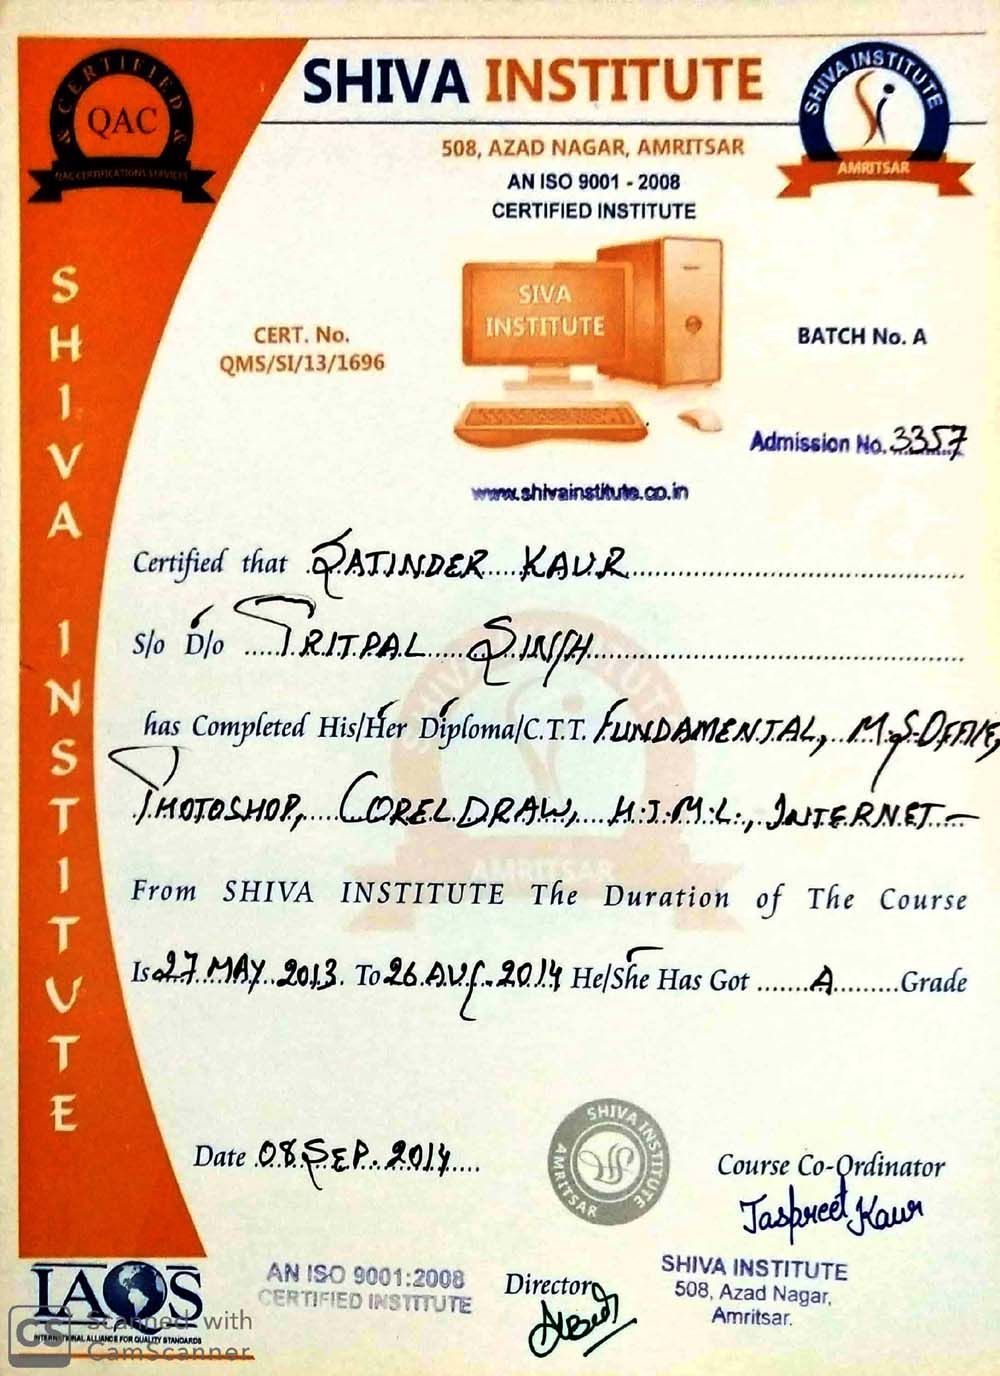 CERTIFIED
QAC
QAC CERTIFICATIONS SERVICES
SHIVA INSTITUTE
SHIVA INSTITUTE
AMRITSAR
508, AZAD NAGAR, AMRITSAR
AN ISO 9001 - 2008
CERTIFIED INSTITUTE
SIVA
INSTITUTE
CERT. No.
QMS/SI/13/1696
BATCH No. A
Admission No. 3357
www.shivainstitute.co.in
SHIVA INSTITUTE
Certified that SATINDER KAUR
S/o D/o PRITPAL SINGH
has Completed His/Her Diploma/C.T.T. FUNDAMENTAL, M.S.OFFICE,
PHOTOSHOP, COREL DRAW, H.T.M.L., INTERNET
SHIVA INSTITUTE
AMRITSAR
From SHIVA INSTITUTE The Duration of The Course
Is 27 MAY 2013. To 26 AUG. 2014 He/She Has Got A Grade
Date 08 SEP. 2014
SHIVA INSTITUTE
AMRITSAR
Course Co-Ordinator
Jaspreet Kaur
AN ISO 9001:2008
CERTIFIED INSTITUTE
Director
SHIVA INSTITUTE
508, Azad Nagar,
Amritsar.
IAQS
INTERNATIONAL ALLIANCE FOR QUALITY STANDARDS
CS Scanned with
CamScanner